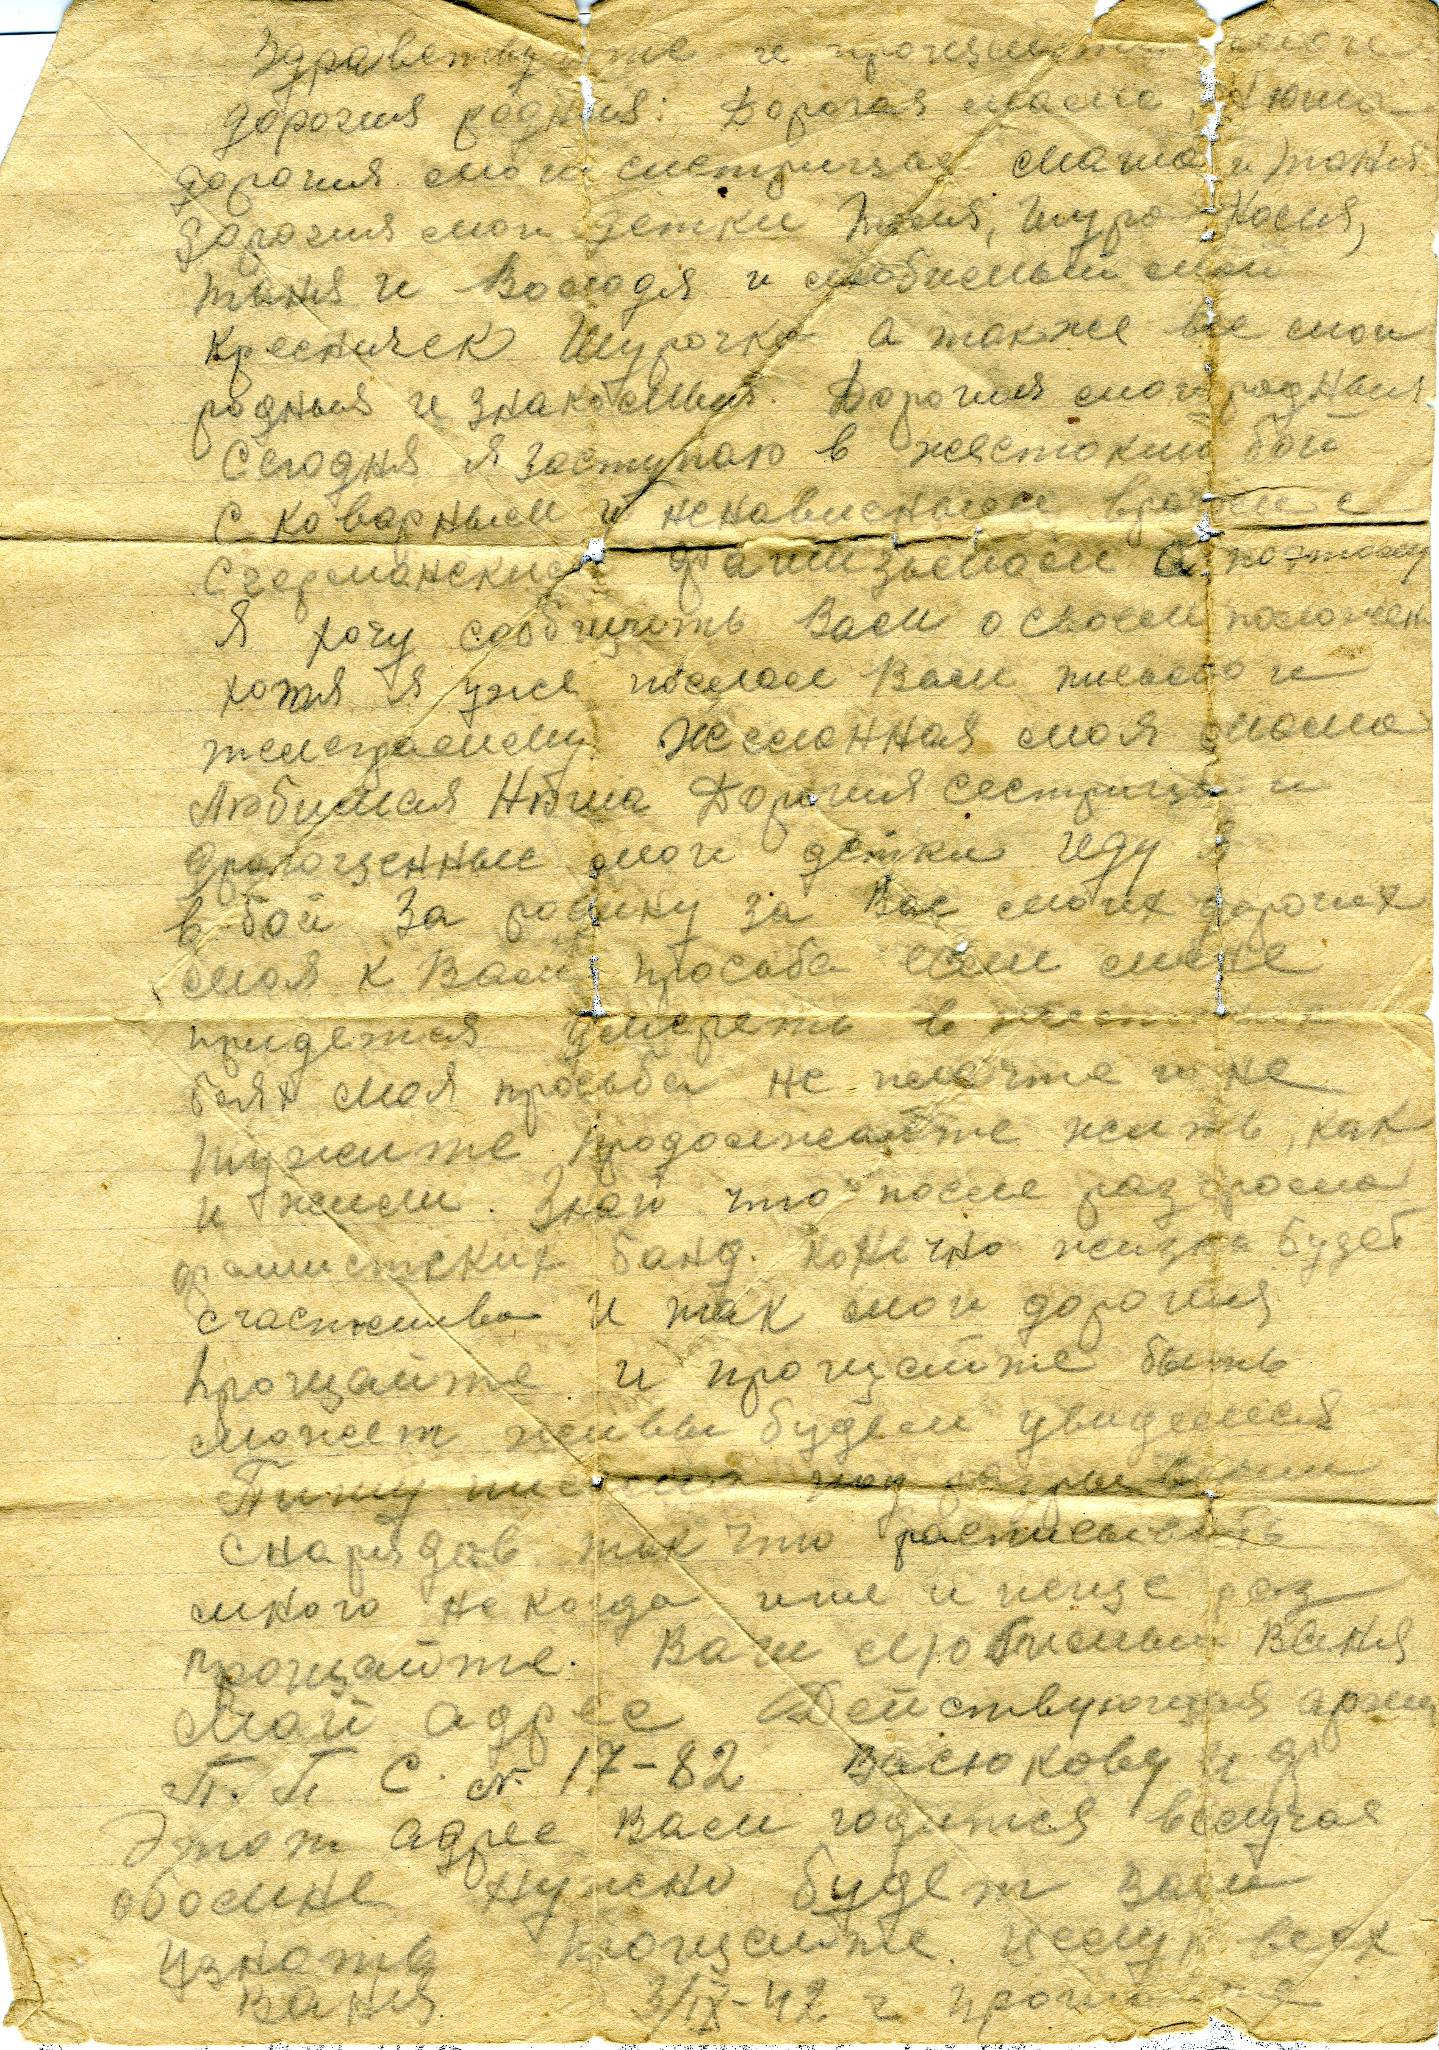 Здравствуйте и прощайте мои
дорогия родныя: Дорогая мама, Нюша
дорогия мои систрицая Маша и Таня
Дорогия мои детки Тася, Шура Коля,
Таня и Володя и любимый мой
Кресничек Шурочка а также все мои
родныя и знакомыя. Дорогия мои родныя
Сегодня я заступаю в жестокий бой
С коварным и ненависным врагом с
Сгерманским фашизьмом а поэтому
Я хочу сообщить Вам о своем положен
хотя я уже послал Вам письмо и
телеграмму. Желанная моя мама
Любимая Нюша Дорогия сестрицы и
Драгоценные мои детки Иду я
в бой За родину за Вас моих дорогих
моя к Вам просьба если мне
придется умереть в жестоких
боях моя просьба не плачте и не
тужите продолжайте жить, как
и жили. Знай что после разгрома
фашистских банд. конечно жизнь будет
счастлива И так мои дорогия
прощайте и прощайте быть
может живы будем увидемся
Пишу письмо под разрывами
снарядов так что расписывать
много некогда и еще раз
прощайте. Ваш любимый Ваня
Мой адрес Действующая арми
П. П С. N. 17-82 Васюкову И Ф
Этот адрес Вам годится вслучая
обомне нужно будет Вам
узнать прощайте целую всех
Ваня 3/IX-42 г прощайте